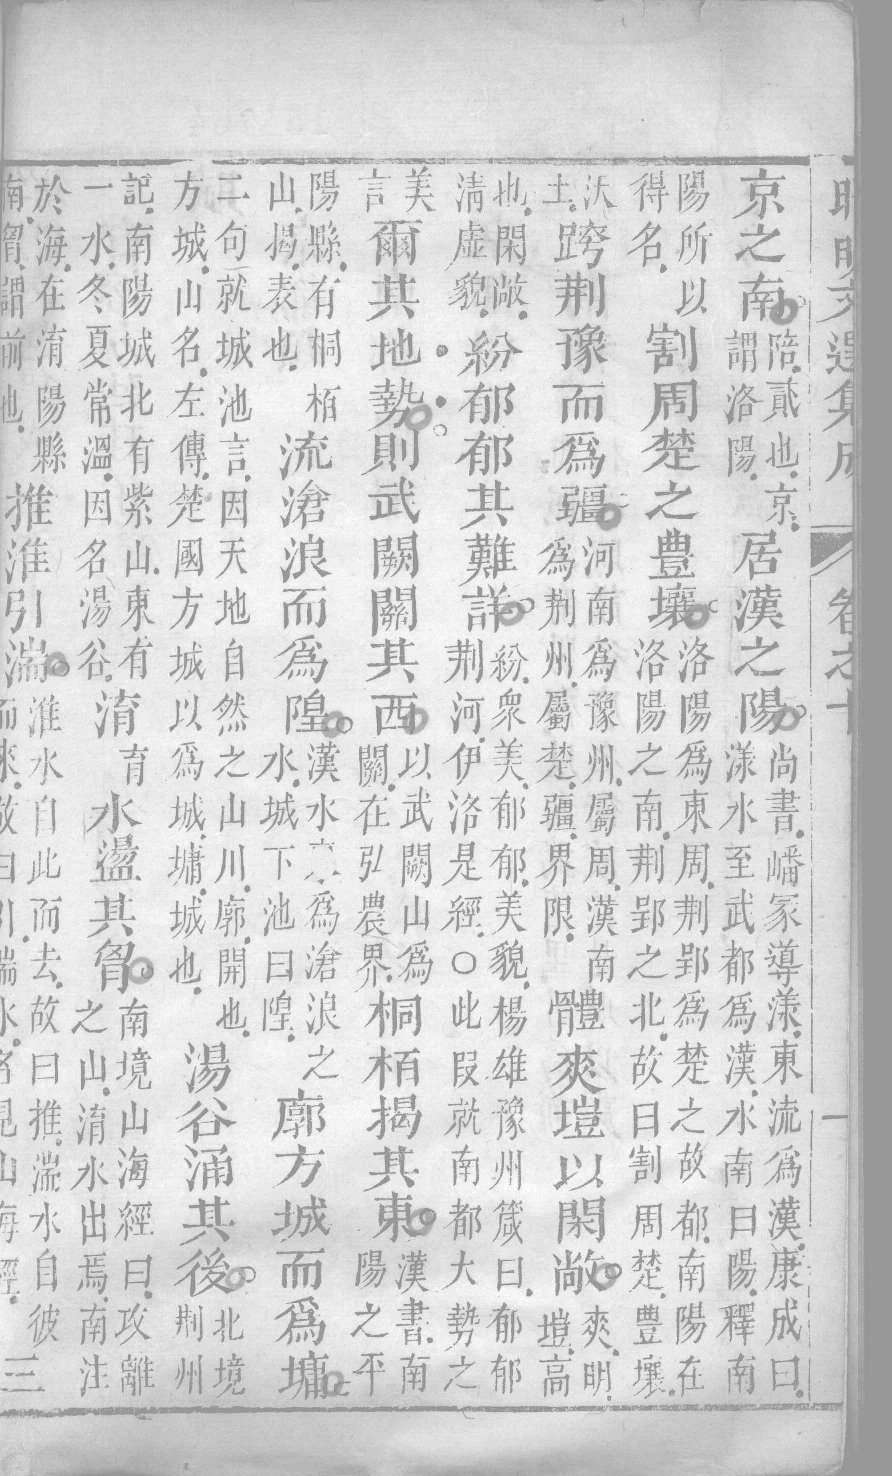 昭明文選集成 卷之十 一
京之南陪貳也京謂洛陽居漢之陽尚書嶓冢導漾東流爲漢康成曰漾水至武都爲漢水南曰陽釋南
陽所以得名割周楚之豊壤洛陽爲東周荆郢爲楚之故都南陽在洛陽之南荆郢之北故曰割周楚豊壤
沃土跨荆豫而爲疆河南爲豫州屬周漢南爲荆州屬楚疆界限體爽塏以閑敞爽明塏高
也閑敞清虛貌紛郁郁其難詳紛衆美郁郁美貌楊雄豫州箴曰郁郁荆河伊洛是經○此段就南都大勢之
美言爾其地勢則武闕關其西以武闕山爲關在弘農界桐栢揭其東漢書南陽之平
陽縣有桐栢山揭表也流滄浪而爲隍漢水東爲滄浪之水城下池曰隍廓方城而爲墉
二句就城池言因天地自然之山川廓開也方城山名左傳楚國方城以爲城墉城也湯谷涌其後北境荆州
記南陽城北有紫山東有一水冬夏常溫因名湯谷淯育水盪其胷南境山海經曰攻離之山淯水出焉南注
於海在淯陽縣南胷謂前也推淮引湍淮水自此而去故曰推湍水自彼而來故曰引湍水名見山海經三